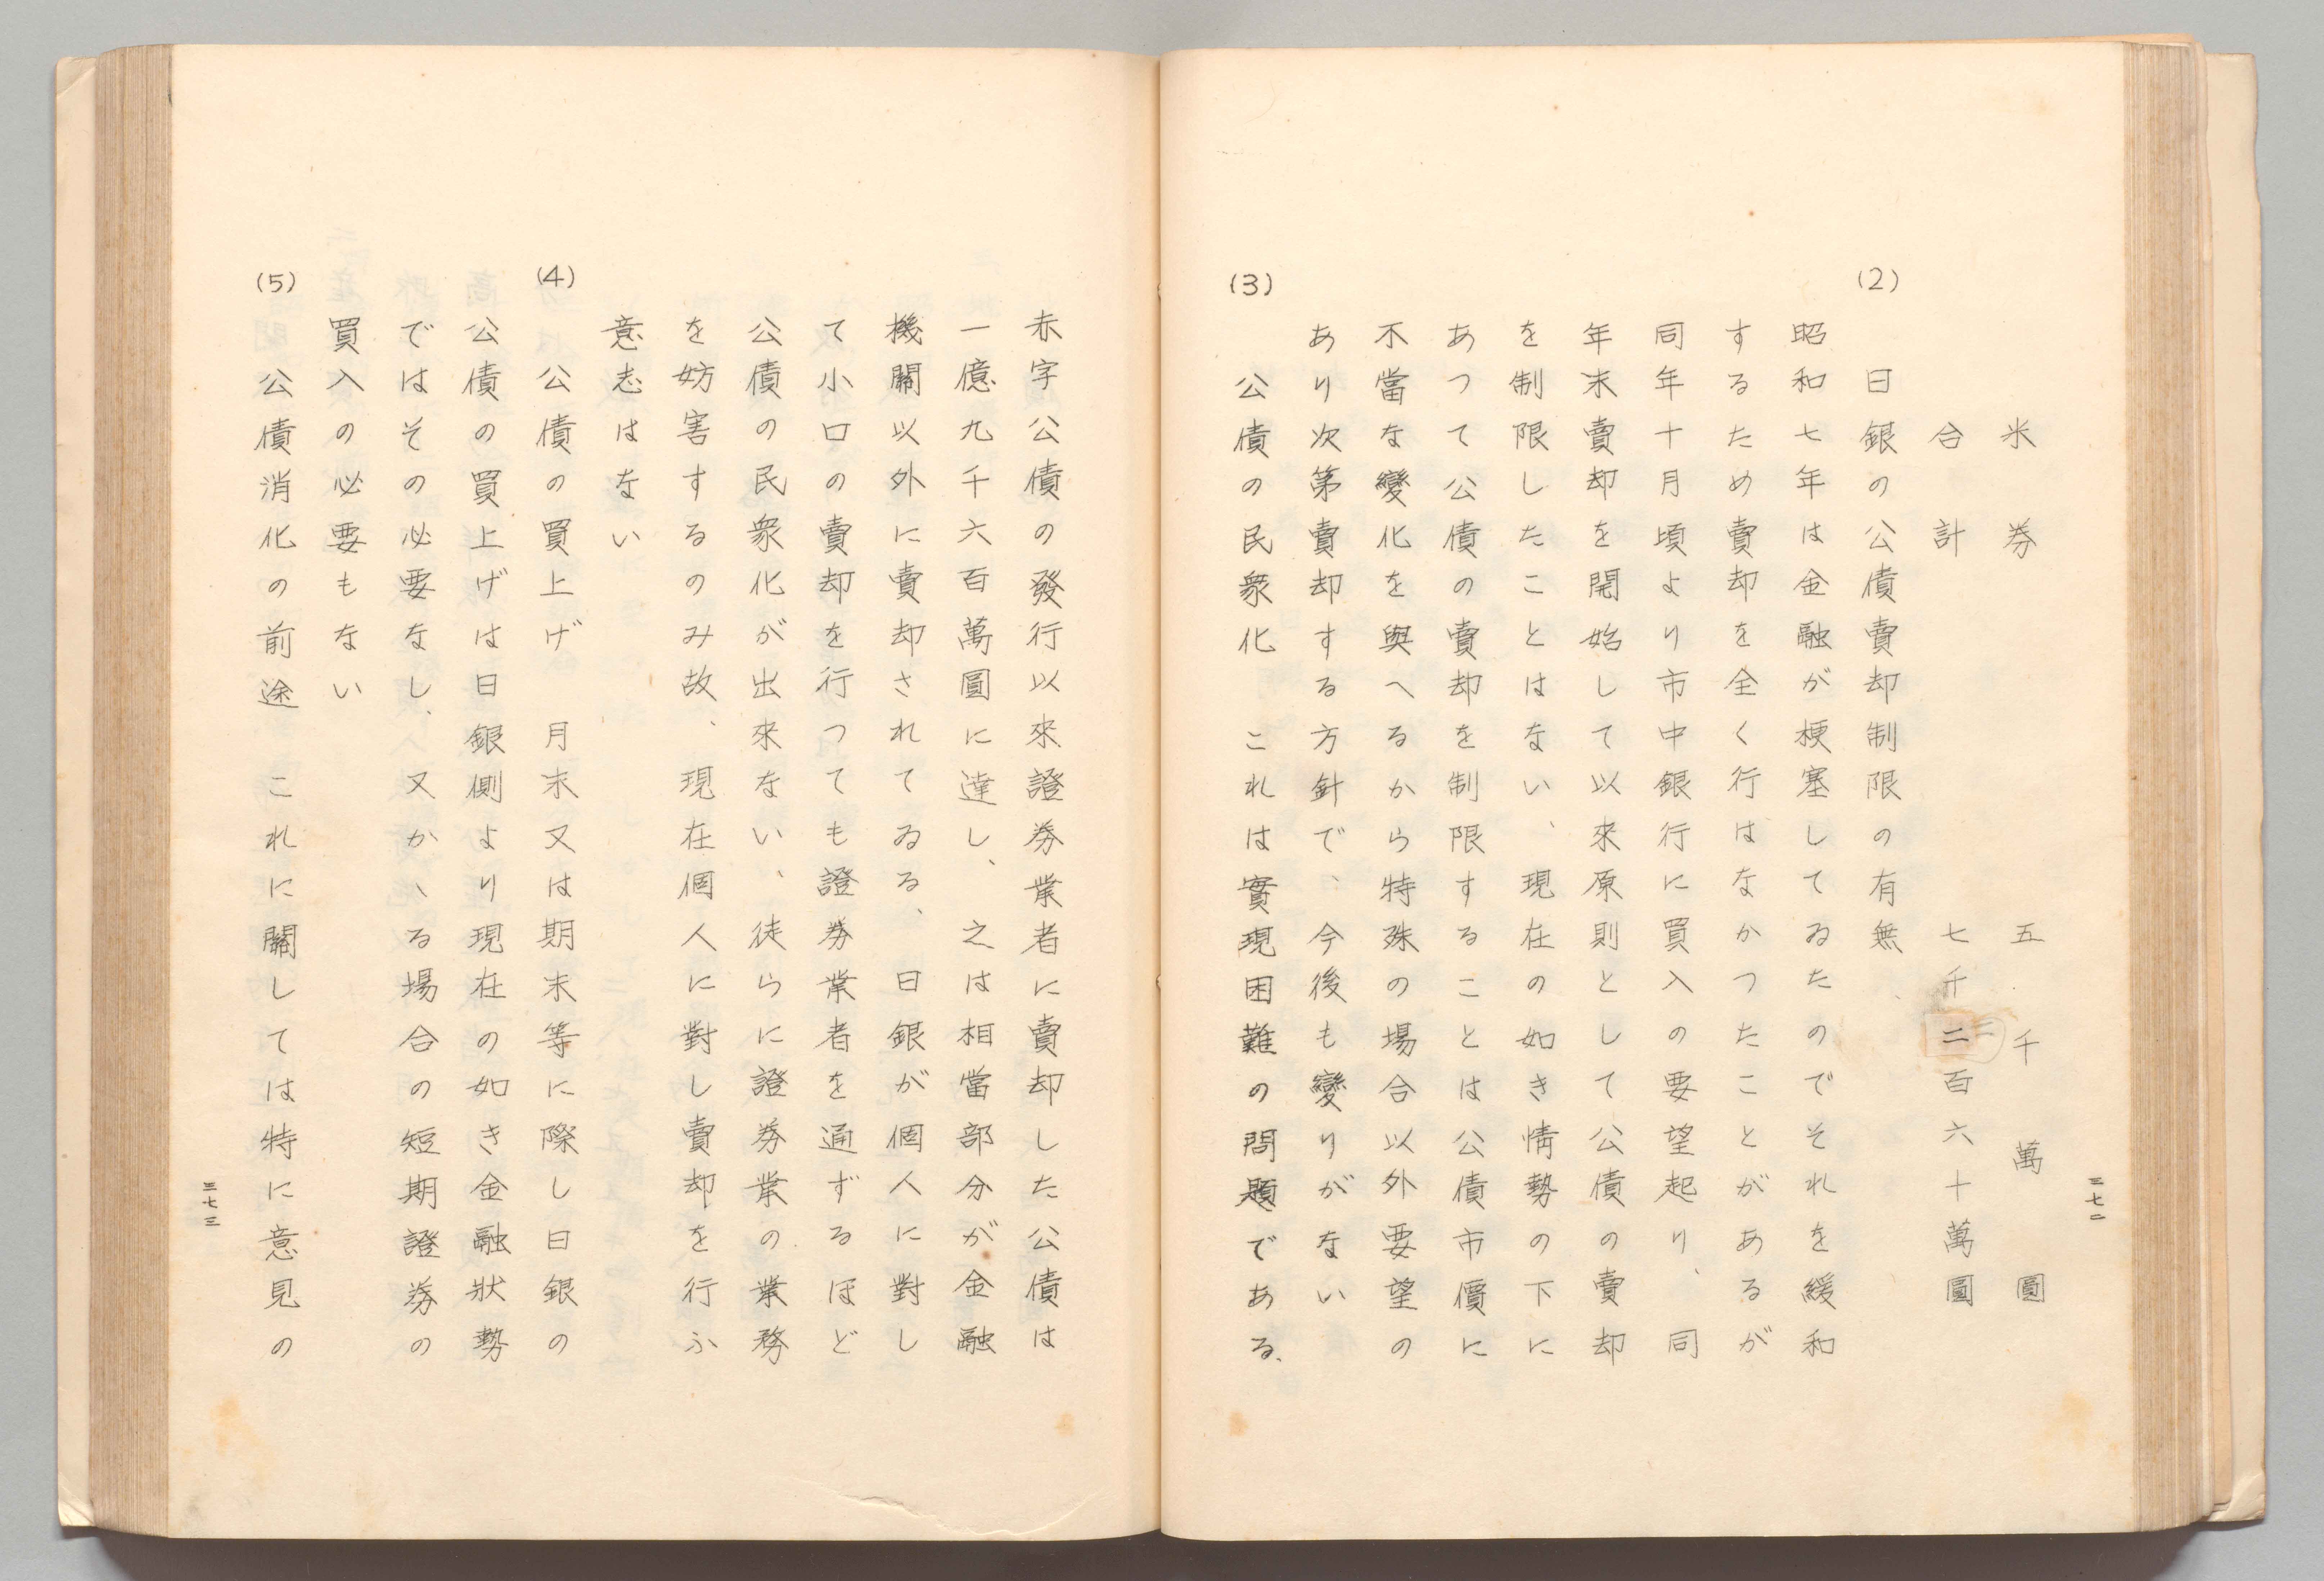 米券　五千萬圓
合計　七千二百六十萬圓
三
(2)　日銀の公債賣却制限の有無
昭和七年は金融が梗塞してゐたのでそれを緩和
するため賣却を全く行はなかつたことがあるが
同年十月頃より市中銀行に買入の要望起り、同
年末賣却を開始して以來原則として公債の賣却
を制限したことはない、現在の如き情勢の下に
あつて公債の賣却を制限することは公債市價に
不當な變化を與へるから特殊の場合以外要望の
あり次第賣却する方針で、今後も變りがない
(3)　公債の民衆化　これは實現困難の問題である、
三七二
赤字公債の發行以來證券業者に賣却した公債は
一億九千六百萬圓に達し、之は相當部分が金融
機關以外に賣却されてゐる、日銀が個人に對し
て小口の賣却を行つても證券業者を通ずるほど
公債の民衆化が出來ない、徒らに證券業の業務
を妨害するのみ故、現在個人に對し賣却を行ふ
意志はない
(4)　公債の買上げ　月末又は期末等に際し日銀の
公債の買上げは日銀側より現在の如き金融狀勢
ではその必要なし、又かゝる場合の短期證券の
買入の必要もない
(5)　公債消化の前途　これに關しては特に意見の
三七三